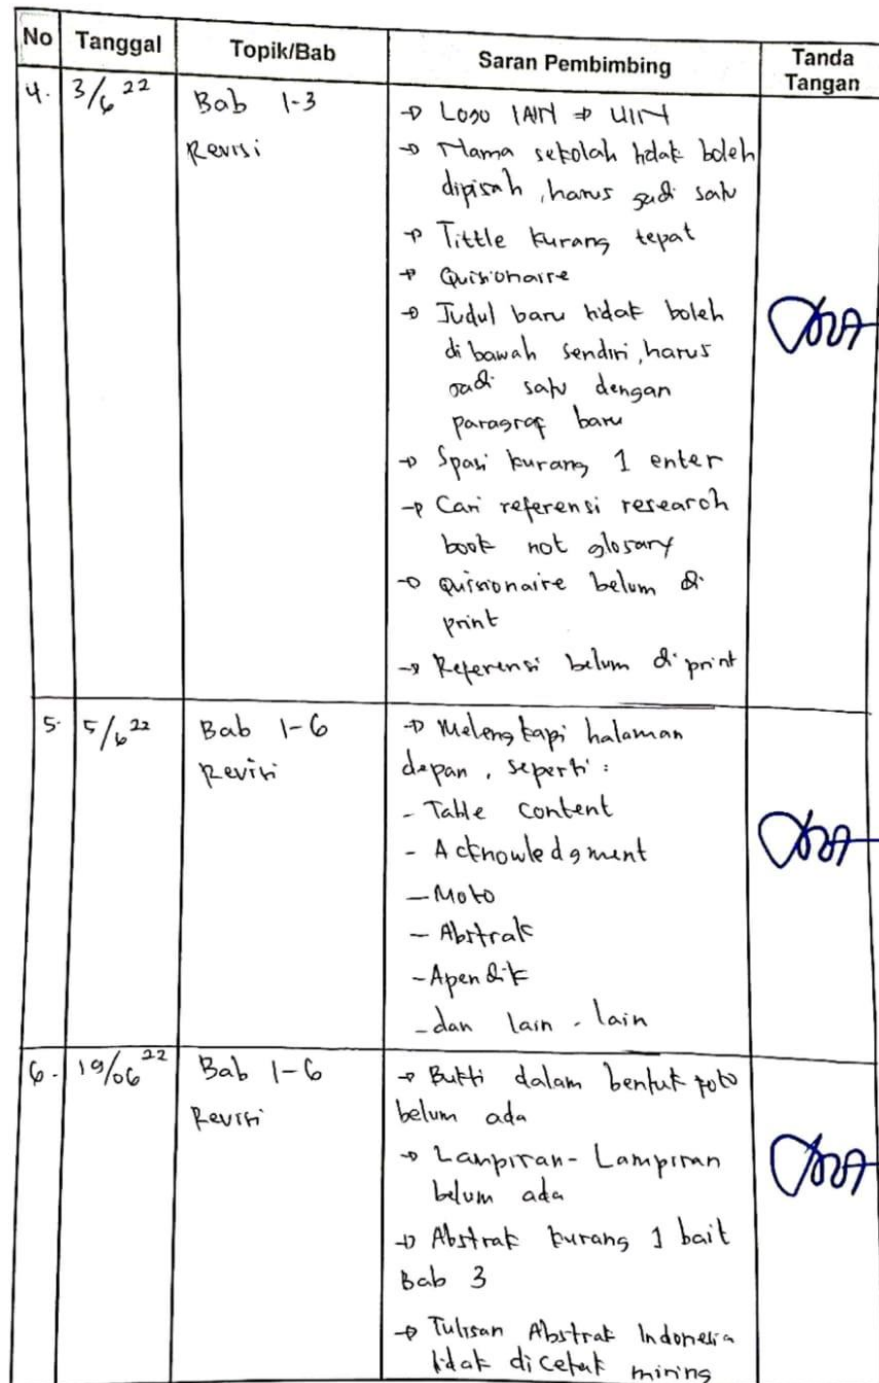 No Tanggal Topik/Bab Saran Pembimbing Tanda Tangan
4. 3/6 22 Bab 1-3 → Logo IAIN ⇒ UIN
Revisi → Nama sekolah tidak boleh
dipisah, harus jadi satu
→ Tittle kurang tepat
→ Quisionaire
→ Judul baru tidak boleh
di bawah sendiri, harus
jadi satu dengan
paragraf baru
→ Spasi kurang 1 enter
→ Cari referensi research
book not glosary
→ Quisionaire belum di
print
→ Referensi belum di print
5. 5/6 22 Bab 1-6 → Melengkapi halaman
Revisi depan, seperti :
- Table content
- Acknowledgment
- Moto
- Abstrak
- Apendik
- dan lain-lain
6. 19/06 22 Bab 1-6 → Bukti dalam bentuk foto
Revisi belum ada
→ Lampiran-Lampiran
belum ada
→ Abstrak kurang 1 bait
Bab 3
→ Tulisan Abstrak Indonesia
tidak dicetak miring